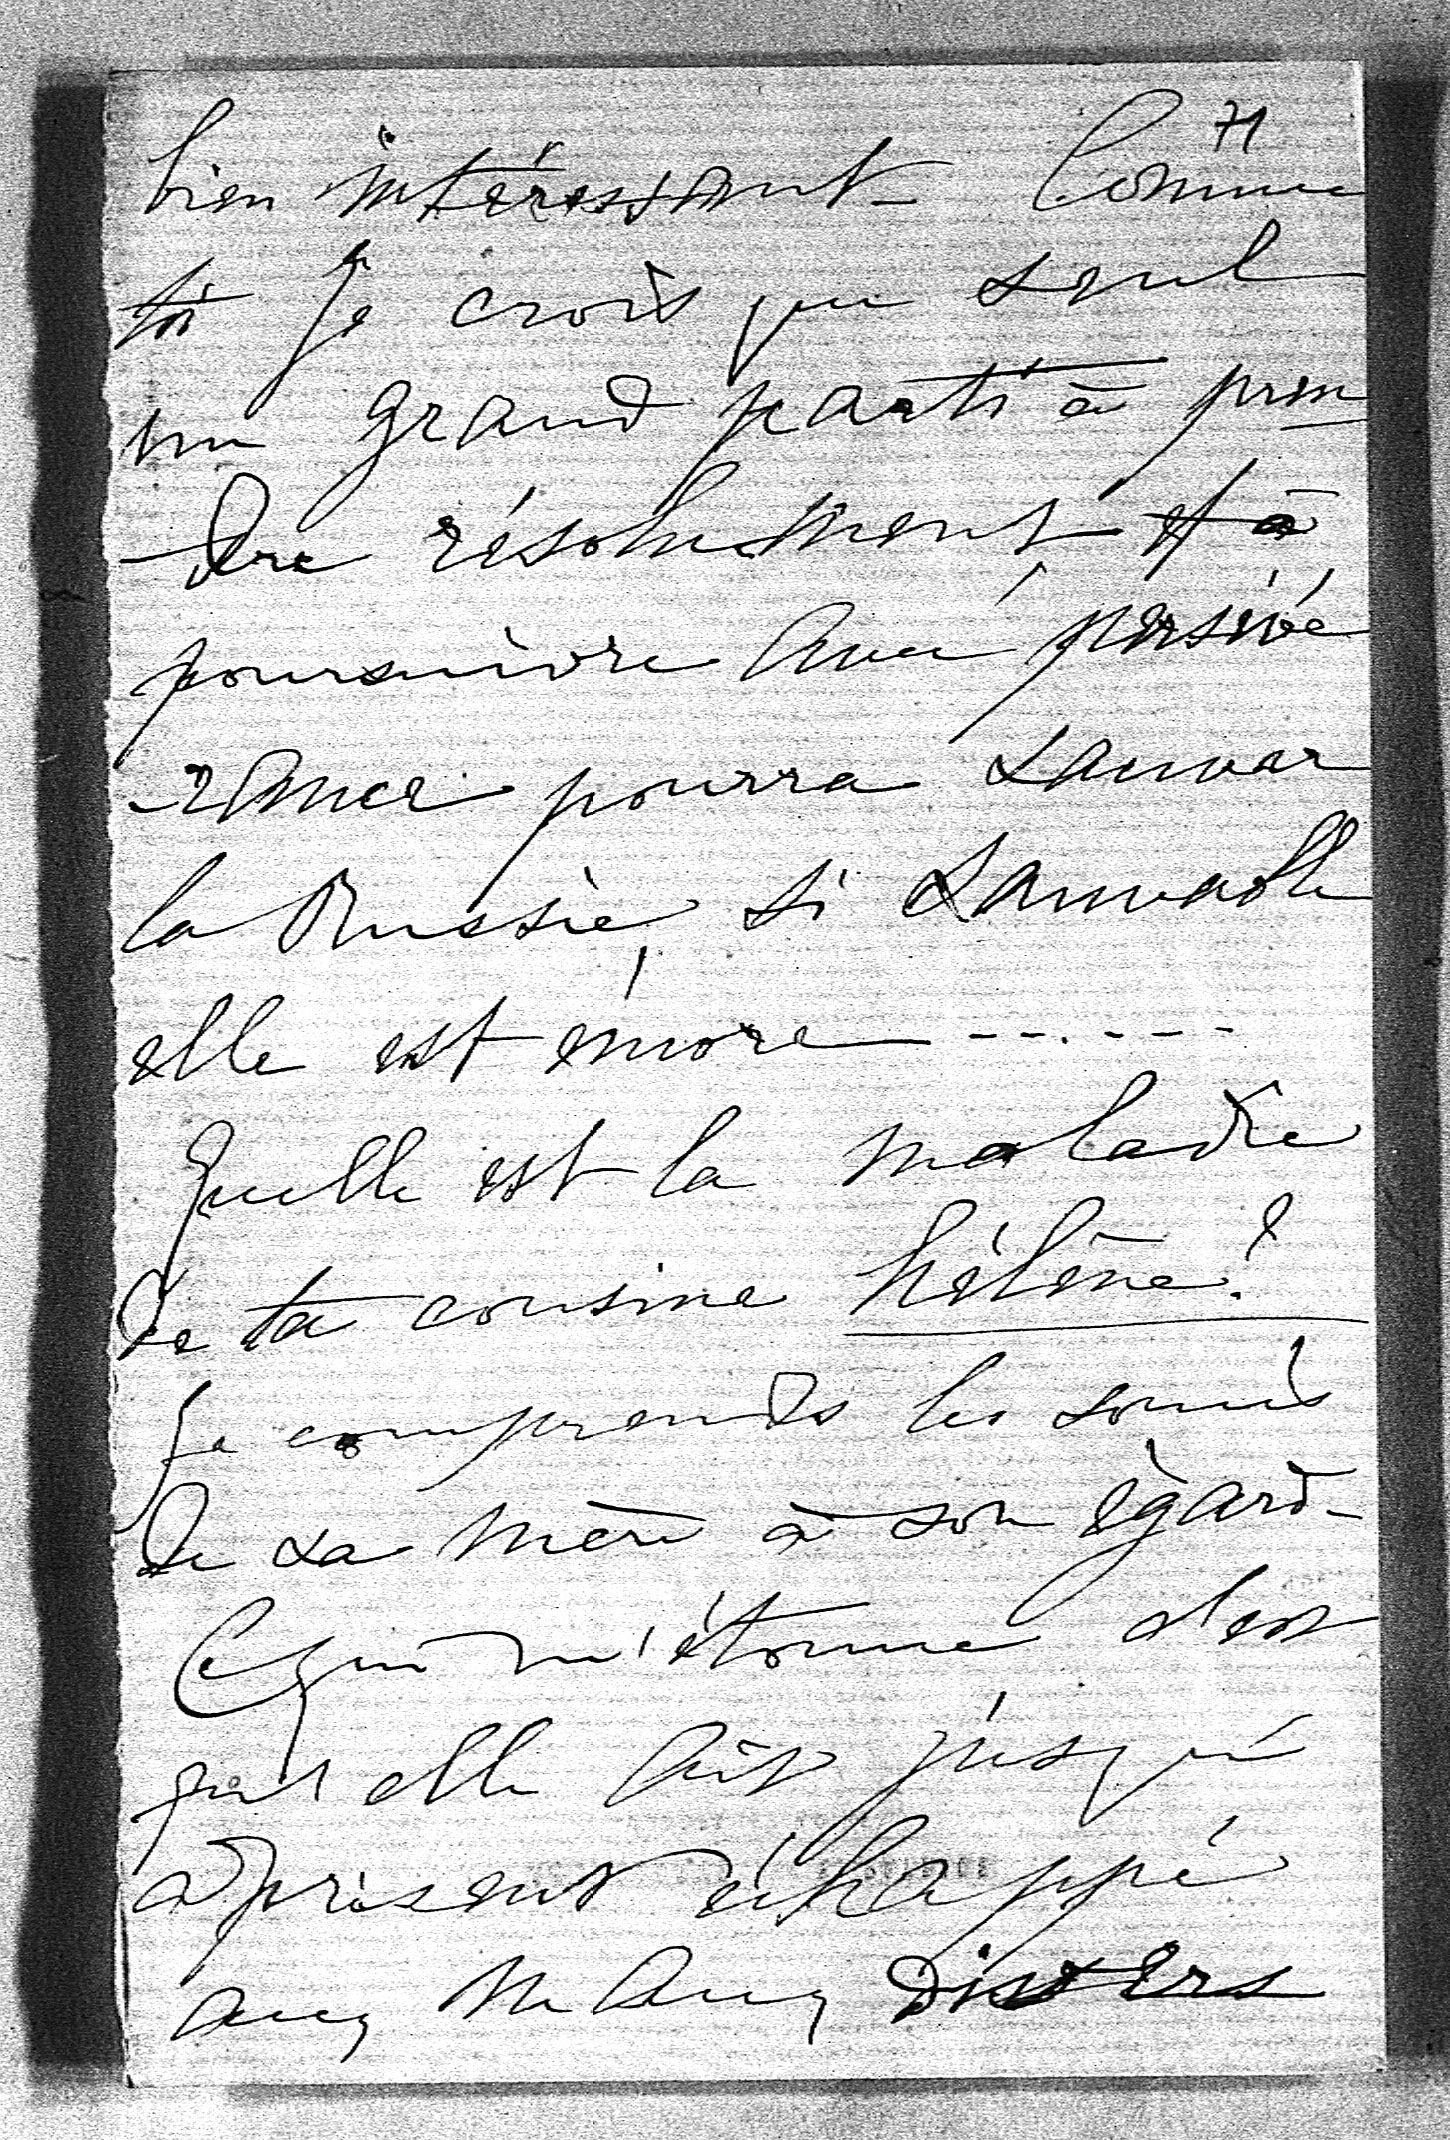 71
bien intéressant – Comme
toi je crois que seul
un grand parti à pren
-dre résolument et à
poursuivre avec persévé
-rance pourra sauver
la Russie, si sauvable
elle est encore ------
Quelle est la maladie
de ta cousine hélène?
Je comprends les soucis
de sa mère à son égard –
Ce qui m'étonne c'est
qu'elle ait jusqu'
à présent échappé
aux maux divers